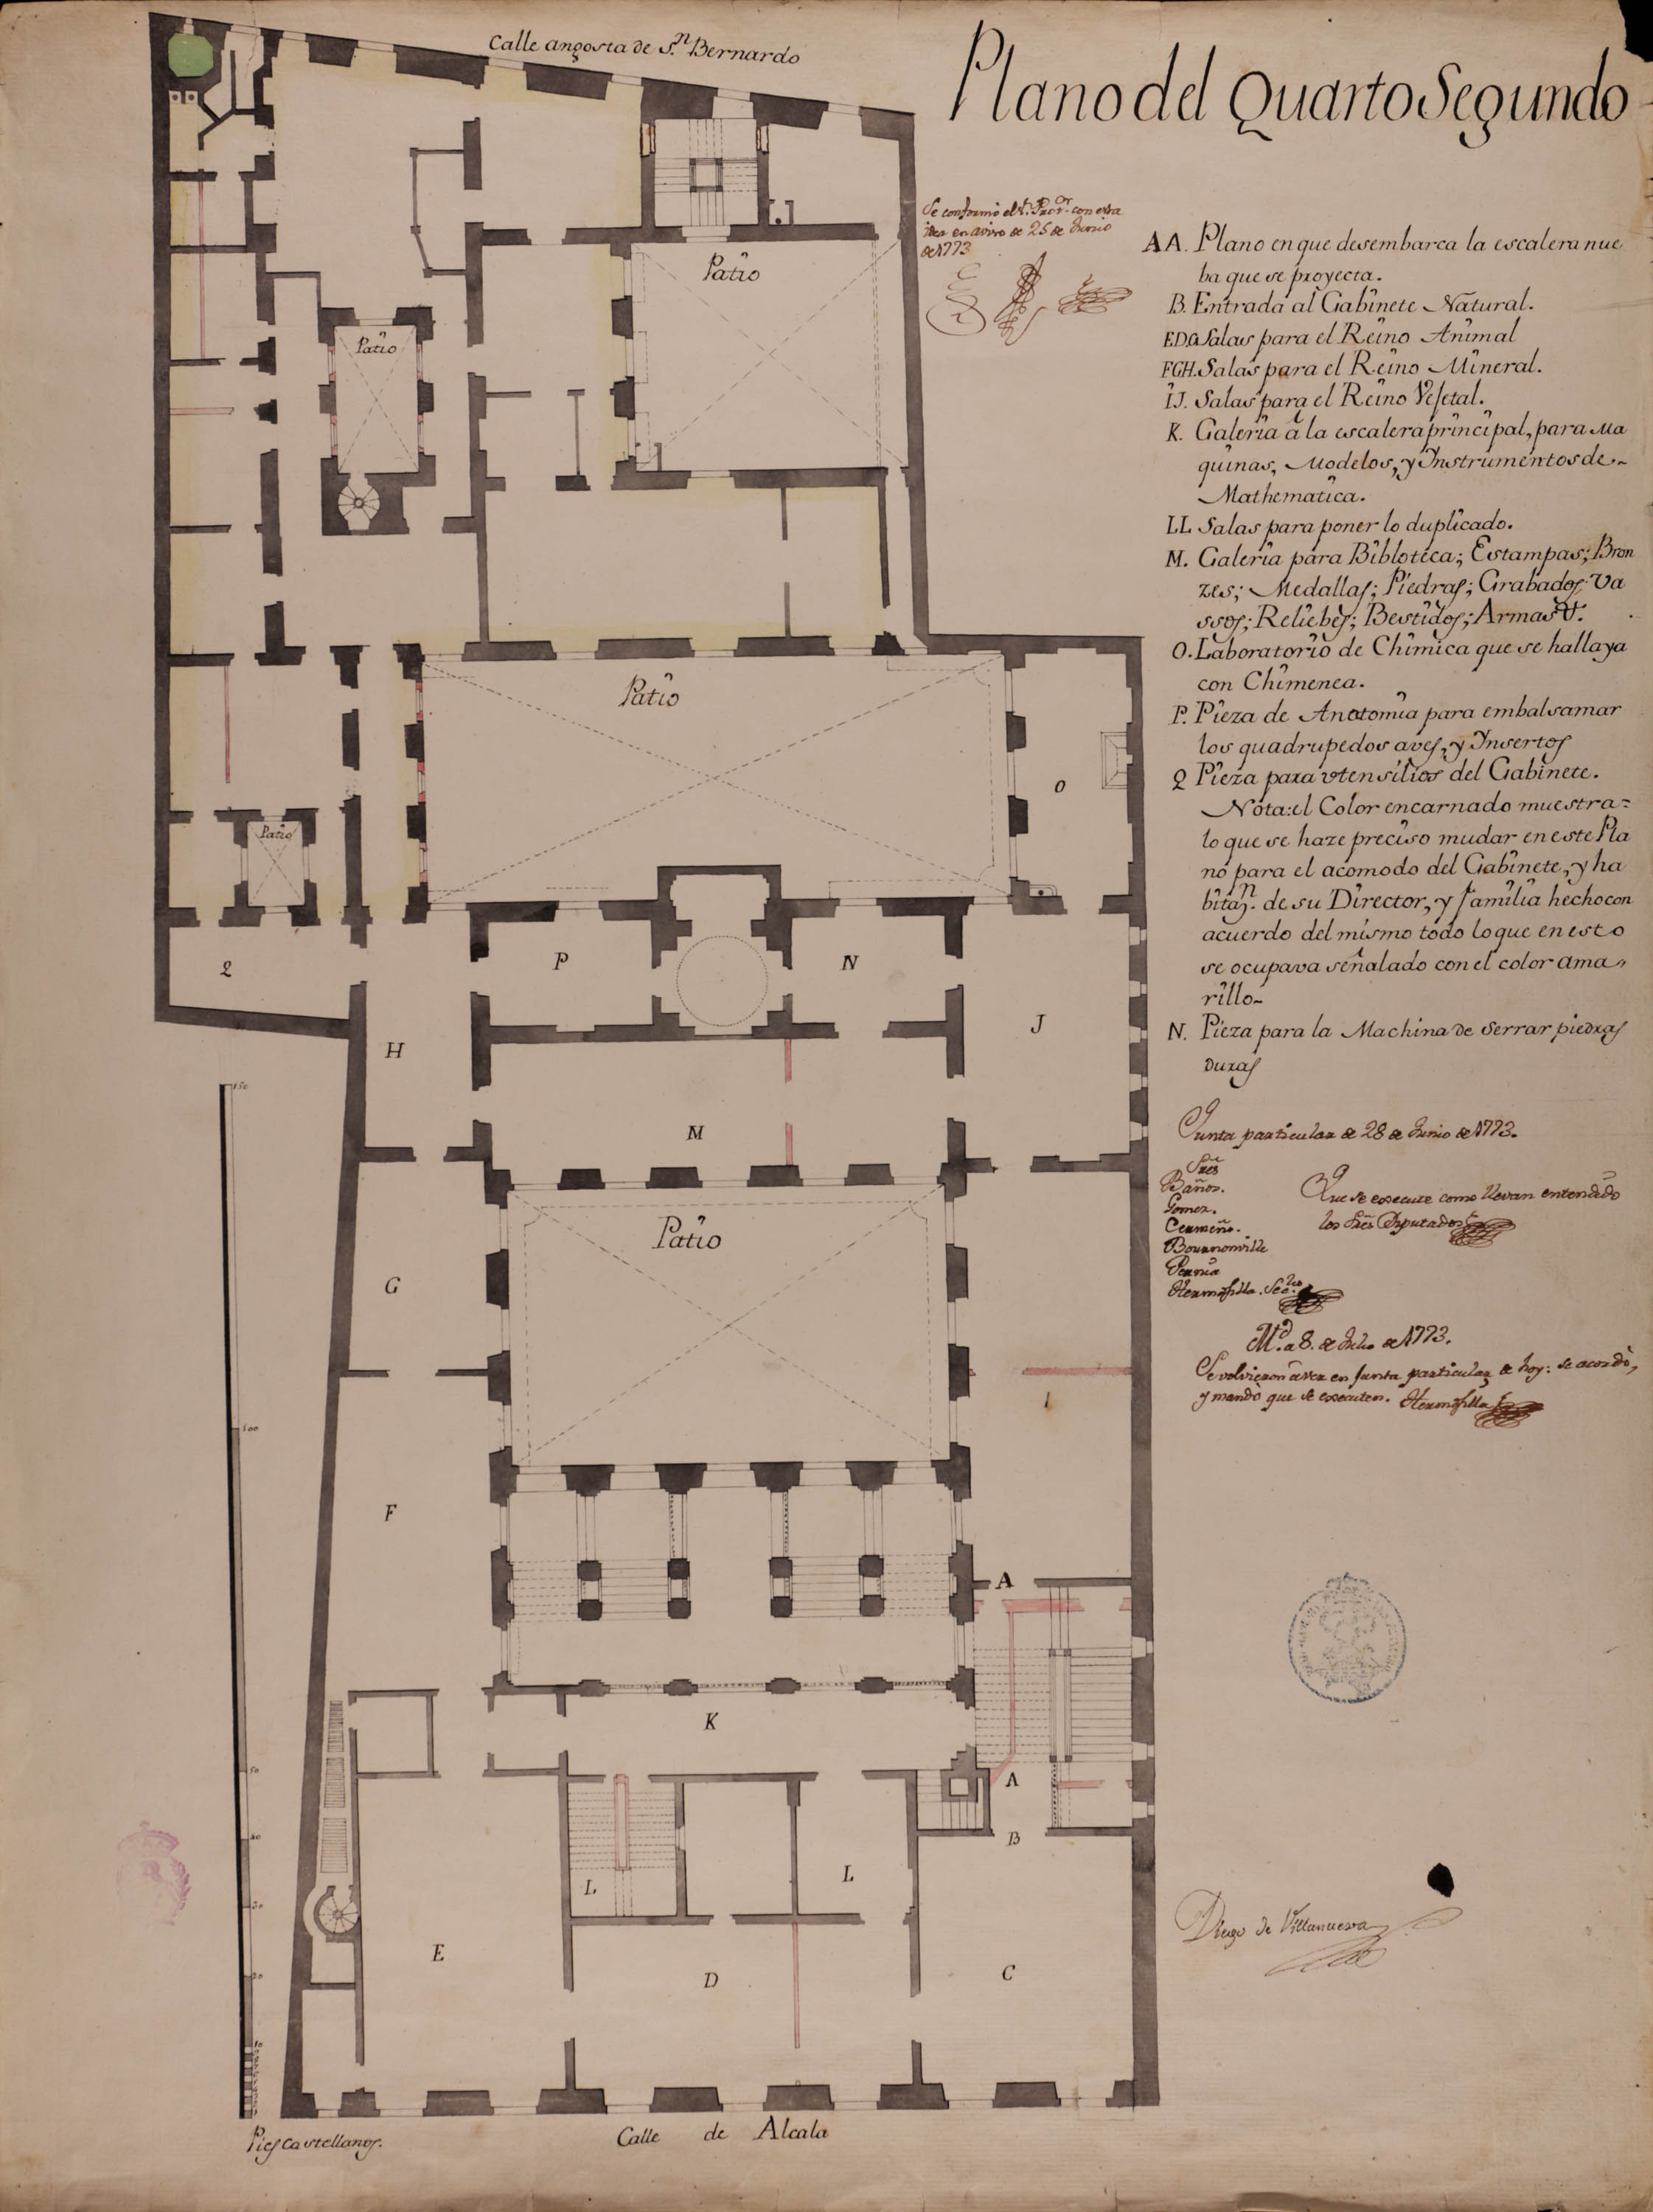 Calle angosta de S.n Bernardo
Plano del Quarto Segundo
Se conformó el S.r Prot.or con esta
idea en aviso de 25 de Junio
de 1773
AA. Plano en que desembarca la escalera nue
ba que se proyecta.
B. Entrada al Gabinete Natural.
EDC. Salas para el Reino Animal
FGH. Salas para el Reino Mineral.
IJ. Salas para el Reino Vejetal.
K. Galeria á la escalera principal, para Ma
quinas, Modelos, y Instrumentos de
Mathematica.
LL Salas para poner lo duplicado.
M. Galeria para Bibloteca; Estampas; Bron
zes; Medallas; Piedras; Grabados; Va
ssos; Reliebes; Bestidos; Armas &.
O. Laboratorio de Chimica que se halla ya
con Chimenea.
P. Pieza de Anatomia para embalsamar
los quadrupedos aves, y Insertos
Q Pieza para vtensilios del Gabinete.
Nota: el Color encarnado muestra=
lo que se haze preciso mudar en este Pla
no para el acomodo del Gabinete, y ha
bitaz.n de su Director, y familia hecho con
acuerdo del mismo todo lo que en esto
se ocupava señalado con el color ama-
rillo-
N. Pieza para la Machina de Serrar piedras
duras
Junta particular de 28 de Junio de 1773.
Sres
Baños.
Gomez.
Cermeño.
Bournonville
Pernia
Hermosilla. Sec.rio
Que se execute como llevan entendido
los Sres Diputados
M.d a 8. de Julio de 1773.
Se volvieron a ver en Junta particular de hoy: se acordó,
y mandó que se executen. Hermosilla
Diego de Villanueva
Patio
Patio
Patio
Patio
O
Q
P
N
H
J
M
Patio
G
I
F
A
K
A
B
L
L
E
D
C
150
100
50
40
30
20
10
Pies Castellanos.
Calle de Alcala